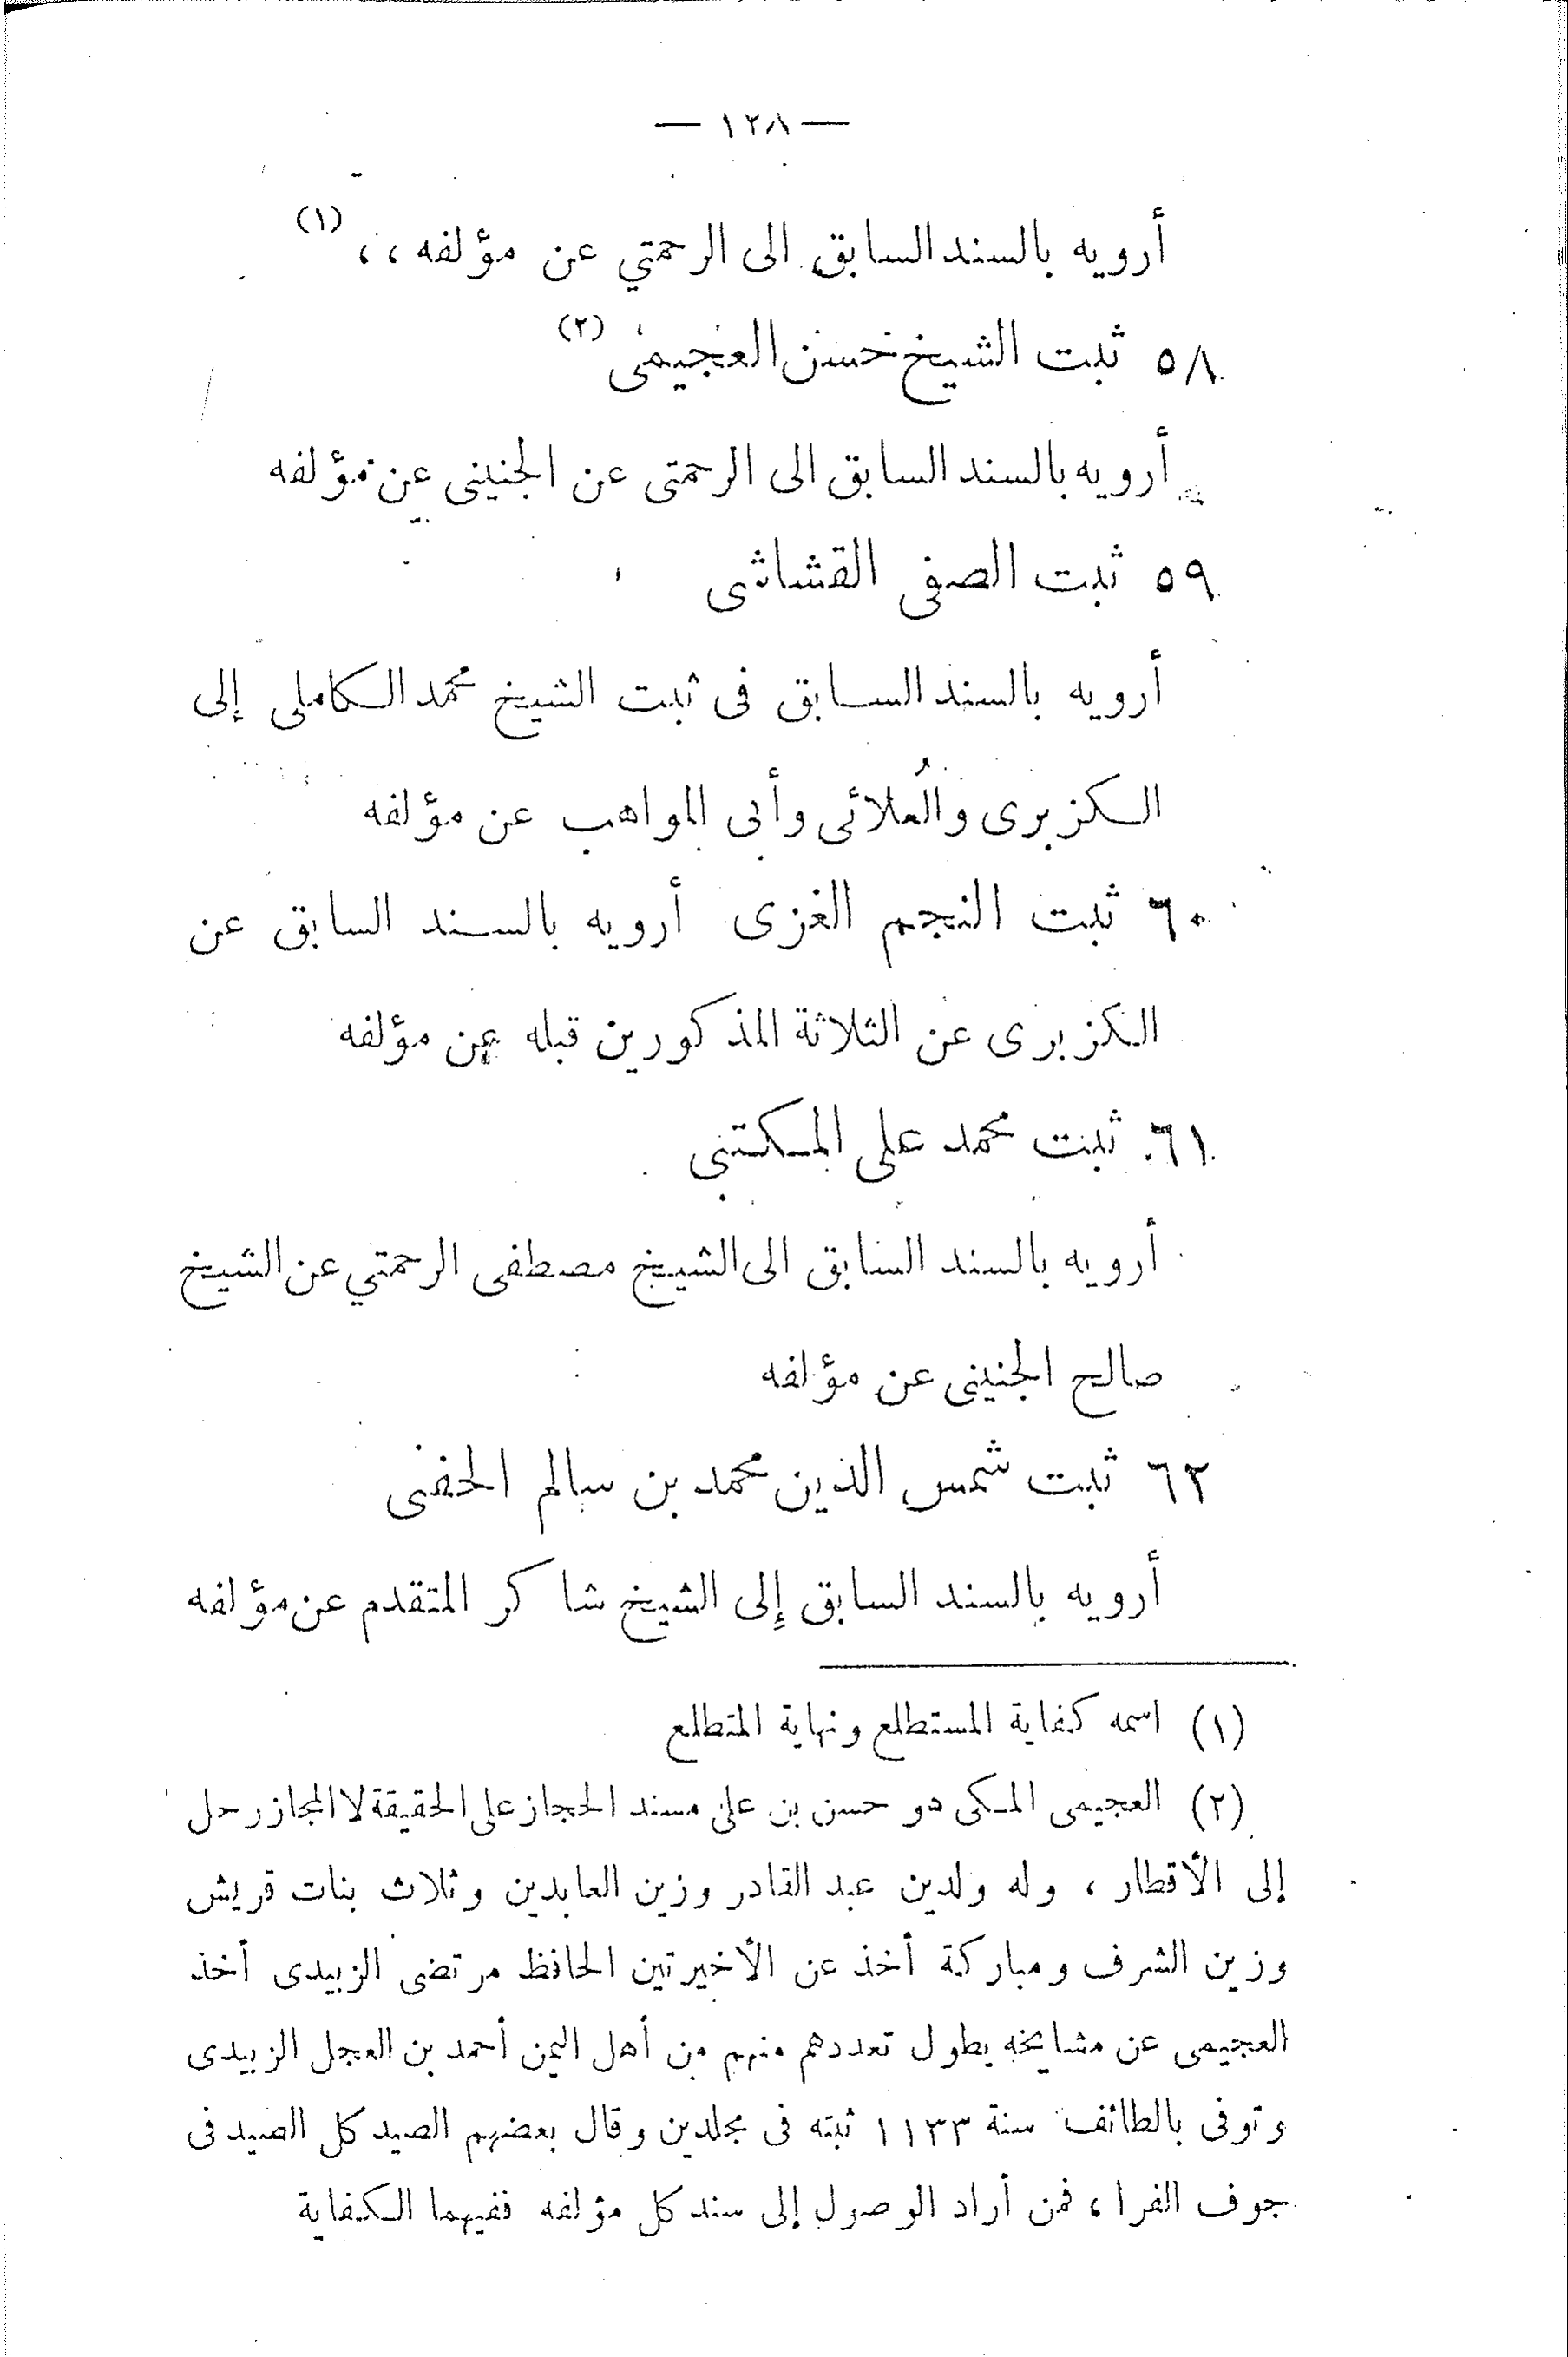 — ١٢٨ —
أرويه بالسند السابق الى الرحمتي عن مؤلفه ،، (١)
٥٨ ثبت الشيخ حسن العجيمى (٢)
أرويه بالسند السابق الى الرحمتى عن الجنينى عن مؤلفه
٥٩ ثبت الصفى القشاشى
أرويه بالسند السابق فى ثبت الشيخ محمد الكاملى إلى
الكزبرى والعُلائى وأبى المواهب عن مؤلفه
٦٠ ثبت النجم الغزى أرويه بالسند السابق عن
الكزبرى عن الثلاثة المذكورين قبله عن مؤلفه
٦١ ثبت محمد على المكتبى
أرويه بالسند السابق الى الشيخ مصطفى الرحمتي عن الشيخ
صالح الجنينى عن مؤلفه
٦٢ ثبت شمس الدين محمد بن سالم الحفنى
أرويه بالسند السابق إلى الشيخ شاكر المتقدم عن مؤلفه
(١) اسمه كفاية المستطلع ونهاية المتطلع
(٢) العجيمى المكى هو حسن بن على مسند الحجاز على الحقيقة لا المجاز رحل
إلى الأقطار ، وله ولدين عبد القادر وزين العابدين وثلاث بنات قريش
وزين الشرف ومباركة أخذ عن الأخيرتين الحافظ مرتضى الزبيدى أخذ
العجيمى عن مشايخه يطول تعددهم منهم من أهل اليمن أحمد بن العجل الزبيدى
وتوفى بالطائف سنة ١١٣٣ ثبته فى مجلدين وقال بعضهم الصيد كل الصيد فى
جوف الفرا ، فمن أراد الوصول إلى سند كل مؤلفه ففيهما الكفاية